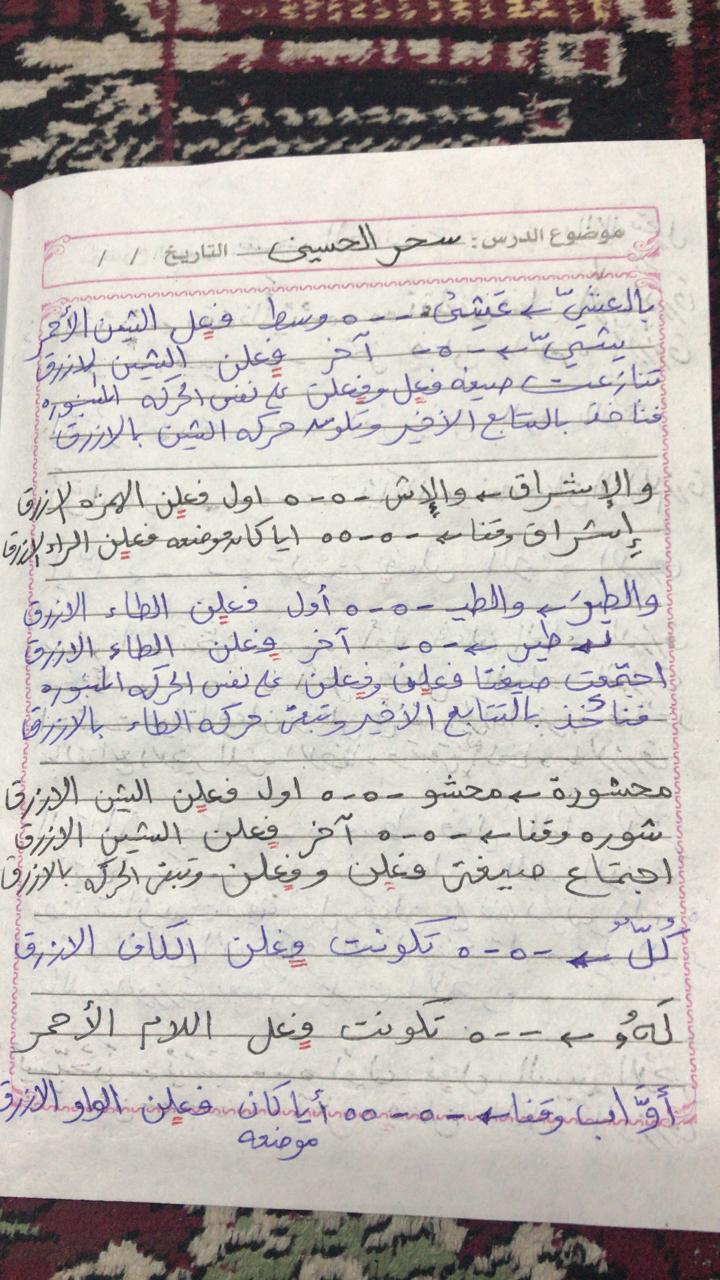 موضوع الدرس: سحر الحسيني التاريخ / /
بالعشيّ ← عَشِيْ - - ه وسط فعل الشين الأحمر
يشيّ ← - ه - آخر فعلن الشين الازرق
تنازعت صيغه فعل وفعلن على نفس الحركه المنبوره
فناخذ بالتتابع الأخير وتلون حركه الشين بالازرق
والإشراق ← والإش - ه - ه اول فعلن الهمزه الازرق
إشراق وقفا ← - ه - ه ه ايا كان موضعه فعلن الراء الازرق
والطيرَ ← والطيـ - ه - ه أول فعلن الطاء الازرق
← طير ← - ه - آخر فعلن الطاء الازرق
اجتمعت صيغتا فعلن وفعلن على نفس الحركه المنبوره
فنأخذ بالتتابع الأخير وتبقى حركه الطاء بالازرق
محشورة ← محشو - ه - ه اول فعلن الشين الازرق
شوره وقفا ← - ه - ه آخر فعلن الشين الازرق
اجتماع صيغتي فعلن وفعلن وتبقى الحركه بالازرق
كُلٌّ ← - ه - ه تكونت فعلن الكاف الازرق
لَهُو ← - - ه تكونت فعل اللام الأحمر
أوَّاب وقفا ← - ه - ه ه أيا كان فعلن الواو الازرق
موضعه